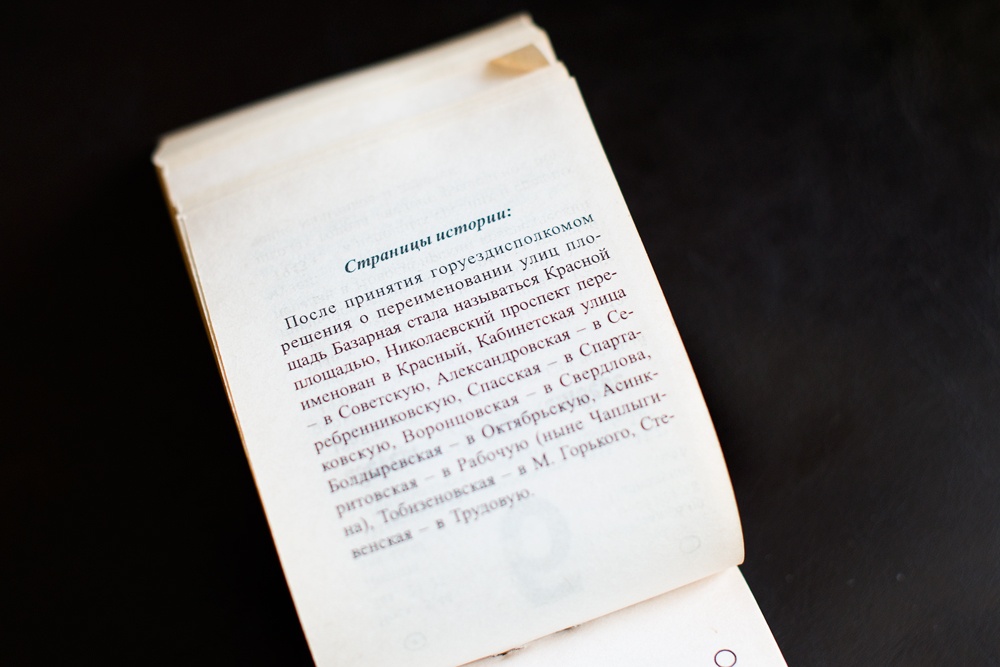 Страницы истории:
После принятия горуездисполкомом
решения о переименовании улиц пло-
щадь Базарная стала называться Красной
площадью, Николаевский проспект пере-
именован в Красный, Кабинетская улица
– в Советскую, Александровская – в Се-
ребренниковскую, Спасская – в Спарта-
ковскую, Воронцовская – в Свердлова,
Болдыревская – в Октябрьскую, Асинк-
ритовская – в Рабочую (ныне Чаплыги-
на), Тобизеновская – в М. Горького, Сте-
венская – в Трудовую.